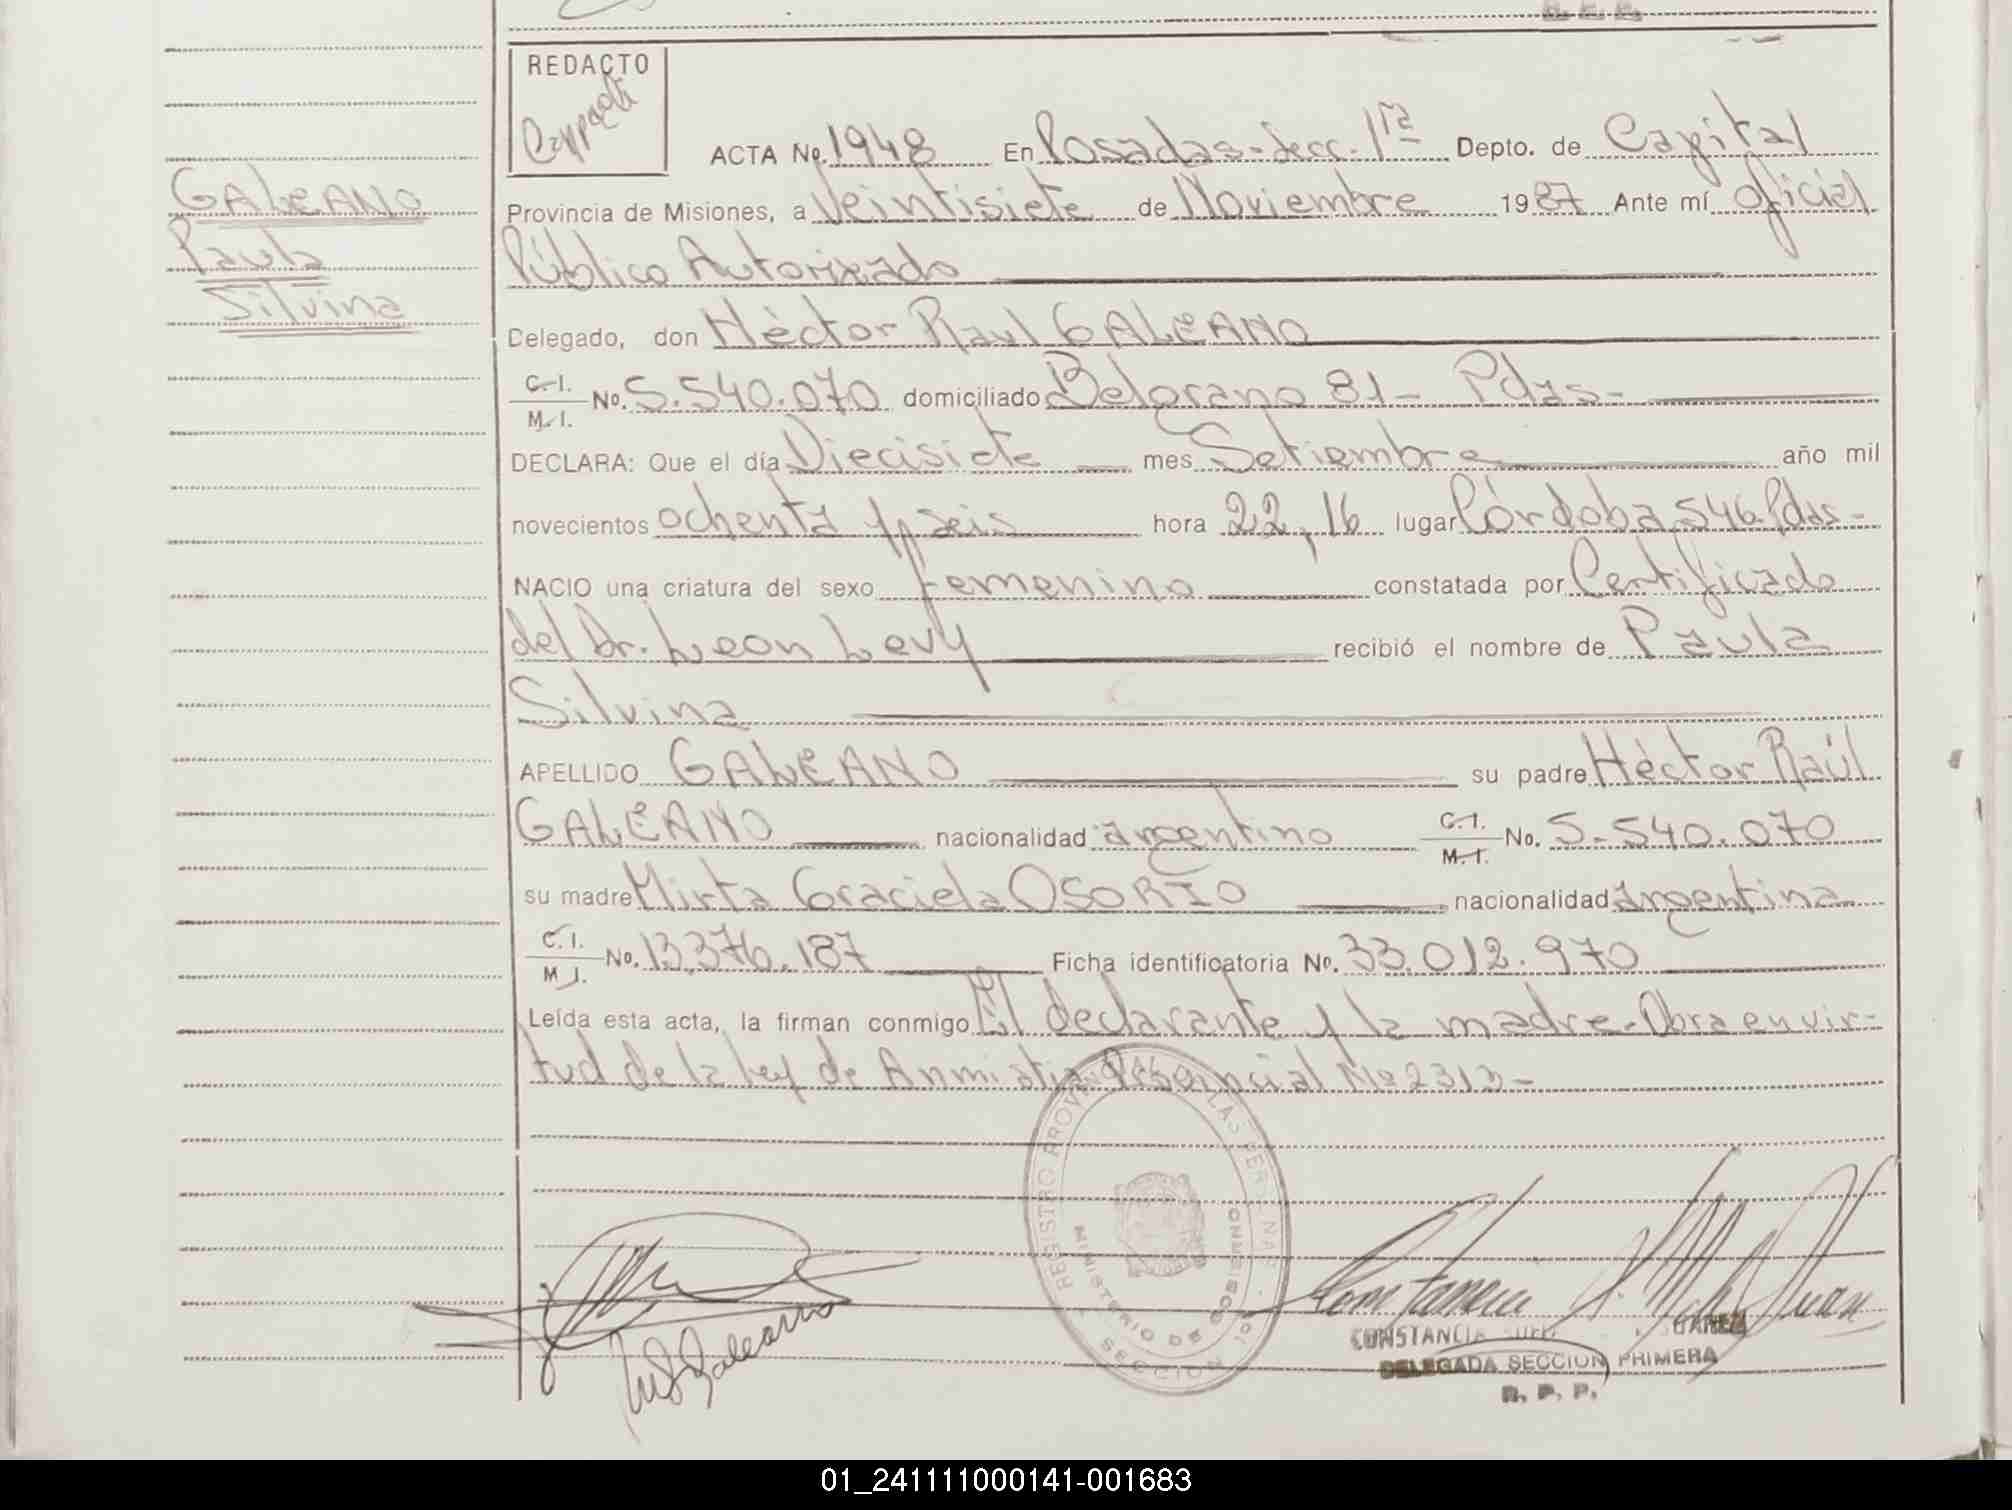 R. P. P.
REDACTO
ACTA No. 1948 En Posadas-Secc. 1ra Depto. de Capital
GALEANO
Paula
Silvina
Provincia de Misiones, a Veintisiete de Noviembre 1987 Ante mí Oficial
Público Autorizado
Delegado, don Héctor Raul GALEANO
C.I. M.I. No. 5.540.070 domiciliado Belgrano 81- Pdas-
DECLARA: Que el día Diecisiete mes Setiembre año mil
novecientos ochenta y seis hora 22,16 lugar Córdoba 546 Pdas-
NACIO una criatura del sexo femenino constatada por Certificado
del Dr. Leon Levy recibió el nombre de Paula
Silvina
APELLIDO GALEANO su padre Héctor Raúl
GALEANO nacionalidad argentino C.I. M.I. No. 5.540.070
su madre Mirta Graciela OSORIO nacionalidad argentina
C.I. M.I. No. 13.376.187 Ficha identificatoria No. 33.012.970
Leída esta acta, la firman conmigo El declarante y la madre-Obra en vir-
tud de la Ley de Anmistia Provincial No 2312-
REGISTRO PROVINCIAL DE LAS PERSONAS
MINISTERIO DE GOBIERNO
SECCION
CONSTANCIA
DELEGADA SECCION PRIMERA
R. P. P.
01_241111000141-001683